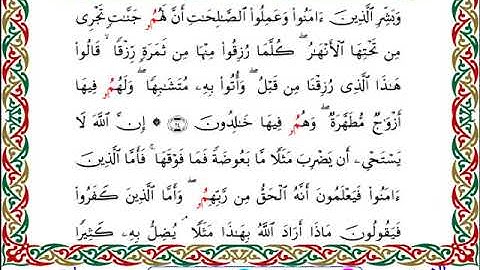 وَبَشِّرِ الَّذِينَ ءَامَنُوا۟ وَعَمِلُوا۟ الصَّـٰلِحَـٰتِ أَنَّ لَهُمُۥ جَنَّـٰتٍ تَجْرِى
مِن تَحْتِهَا الْأَنْهَـٰرُ ۖ كُلَّمَا رُزِقُوا۟ مِنْهَا مِن ثَمَرَةٍ رِّزْقًا ۙ قَالُوا۟
هَـٰذَا الَّذِى رُزِقْنَا مِن قَبْلُ ۖ وَأُتُوا۟ بِهِۦ مُتَشَـٰبِهًا ۖ وَلَهُمُۥ فِيهَا
أَزْوَٰجٌ مُّطَهَّرَةٌ ۖ وَهُمُۥ فِيهَا خَـٰلِدُونَ ۝٢٤ ۞ إِنَّ اللَّهَ لَا
يَسْتَحْىِۦ أَن يَضْرِبَ مَثَلًا مَّا بَعُوضَةً فَمَا فَوْقَهَا ۚ فَأَمَّا الَّذِينَ
ءَامَنُوا۟ فَيَعْلَمُونَ أَنَّهُ الْحَقُّ مِن رَّبِّهِمُۥ ۖ وَأَمَّا الَّذِينَ كَفَرُوا۟
فَيَقُولُونَ مَاذَا أَرَادَ اللَّهُ بِهَـٰذَا مَثَلًا ۘ يُضِلُّ بِهِۦ كَثِيرًا